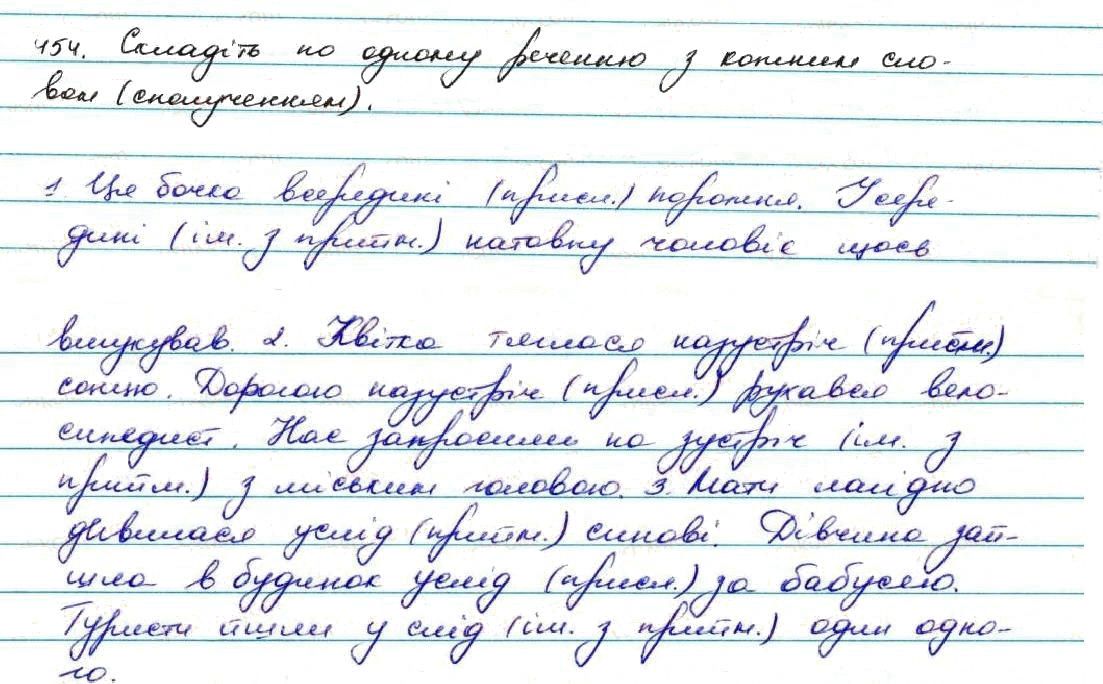 454. Складіть по одному реченню з кожним сло-
вом (сполученням).
1. Ця бочка всередині (присл.) порожня. Усере-
дині (ім. з прийм.) натовпу чоловік щось
вишукував. 2. Квітка тяглася назустріч (прийм.)
сонцю. Дорогою назустріч (присл.) рухався вело-
сипедист. Нас запросили на зустріч (ім. з
прийм.) з міським головою. 3. Мати лагідно
дивилася услід (прийм.) синові. Дівчина зай-
шла в будинок услід (присл.) за бабусею.
Туристи йшли у слід (ім. з прийм.) один одно-
го.